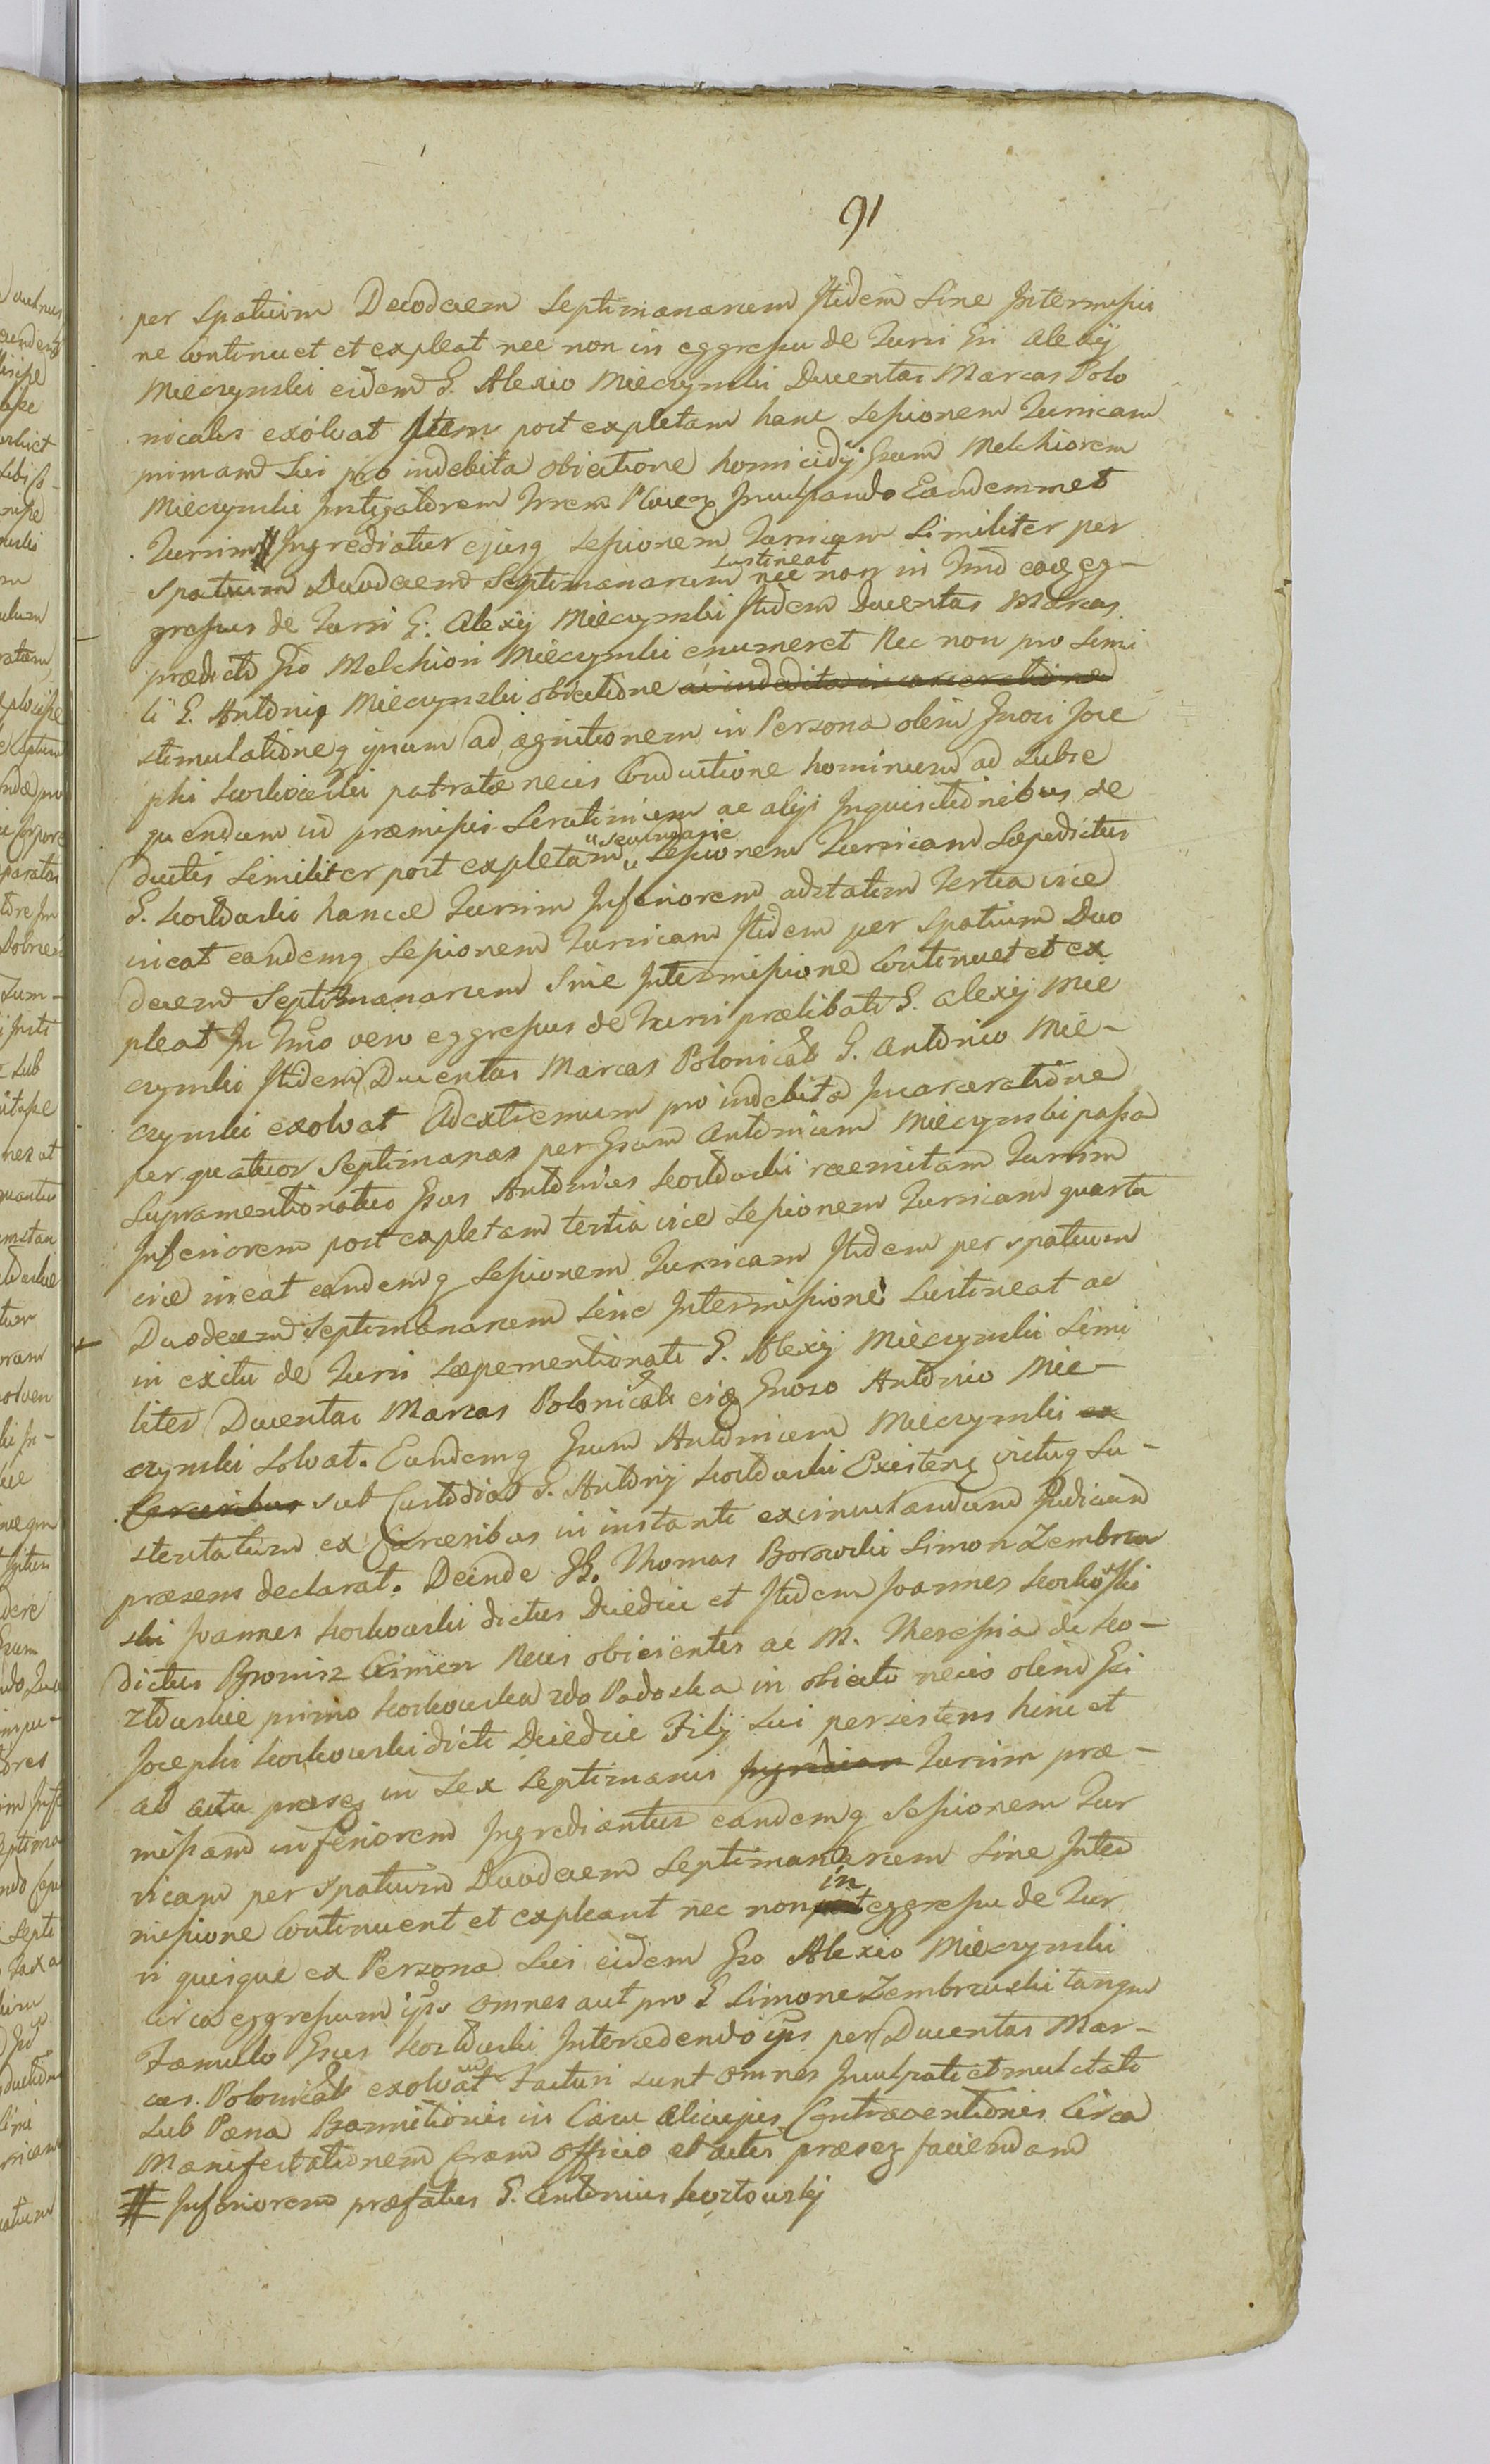 91
per spatium Duodecem Septimanarum Itidem Sine Intermissio
ne Continuet et expleat nec non in eggressu de Turri Gsi Alexij
Mieczynski eidem G. Alexio Mieczynski Ducentas Marcas Polo
nicales exolvat Item post expletam hanc Sessionem Turricam
primam Sui pro indebita obiectione homicidij Gsum Melchiorem
Mieczynski Instigatorem Inculpando Eandemmet
Turrim # Ingrediatur ejusq Sessionem Turricam Similiter per
spatium Duodecem Septimanarum sustineat nec non in eg-
gressus de Turri G. Alexij Mieczynski Itidem Ducentas Marcas
prædicto Gso Melchiori Mieczynski enumeret Nec non pro simi
li G. Antonij Mieczynski obiectione ac indebita incarceratione
stimulationeq ipsum ad agnitionem in Persona olim Gnosi Jose
phi Koskowski patratæ necis Conductione hominum ad Subse
quendum id præmissis Scrutinium ac alijs Inquisitionibus de
ductis Similiter post expletam "secundarie" Sessionem Turricam Sæpedictus
G. Kozlowski hancce Turrim Inferiorem adstatim tertia vice
ineat eandemq Sessionem Turricam Itidem per spatium Duo
decem Septimanarum Sine Intermissione Continuet et ex
pleat In vero eggressus de Turri prælibati G. Alexij Mie
czynski Itidem Ducentas Marcas Polonicales G. Antonio Mie-
czynski exolvat Adextremum pro indebita Incarceratione
per quatuor Septimanas per Gsum Antonium Mieczynski passa
Supramentionatus Gsus Antonius Kozlowski raemitam Turrim
Inferiorem post expletam tertia vice Sessionem Turricam quarta
vice ineat eandemq Sessionem Turricam Itidem per spatium
Duodecem Septimanarum Sine Intermissione Sustineat ac
in exitu de Turri Sæpementionati G. Alexij Mieczynski Simi
liter Ducentas Marcas Polonicales Gnoso Antonio Mie-
czynski Solvat. Eandemq Gsum Antonium Mieczynski ex
Carceribus sub Custodia G. Antonij Kozlowski victuq Su-
stentatum ex Carceribus in instanti exinculandum Judicium
præsens declarat. Deinde GG. Thomas Borowski Simon Zembrzu
ski Joannes Koskowski dictus Dziedzic et Itidem Joannes Koskowski
dictus Bronisz Crimen Necis obicientes ac M. Theressia de Ko-
zlowskie primo Koskowska 2do Padoska in obiectu necis olim Gsi
Josephi Koskowski dicti Dziedzic Filij Sui persistens hinc et
ab actu in Sex Septimanis Ingredian Turrim præ-
missam inferiorem Ingrediantur eandemq Sessionem Tur
ricam per spatium Duodecem Septimanarum Sine Inter
missione Continuent et expleant nec non in eggressu de Tur
ri quisque ex Persona Sui eidem Gso Alexio Mieczynski
circa eggressum omnes aut pro G Simone Zembrzuski tanqm
Famulo Gsus Kozlowski Intercedendo per Ducentas Mar-
cas. Polonicales exolvat Facturi sunt omnes Inculpati et mulctati
Sub Pæna Bannitionis in Casu alicujus Contraventionis Circa
Manifestationem Coram Officio et actis faciendam
# Inferiorem præfatus G. Antonius Kozlowskj